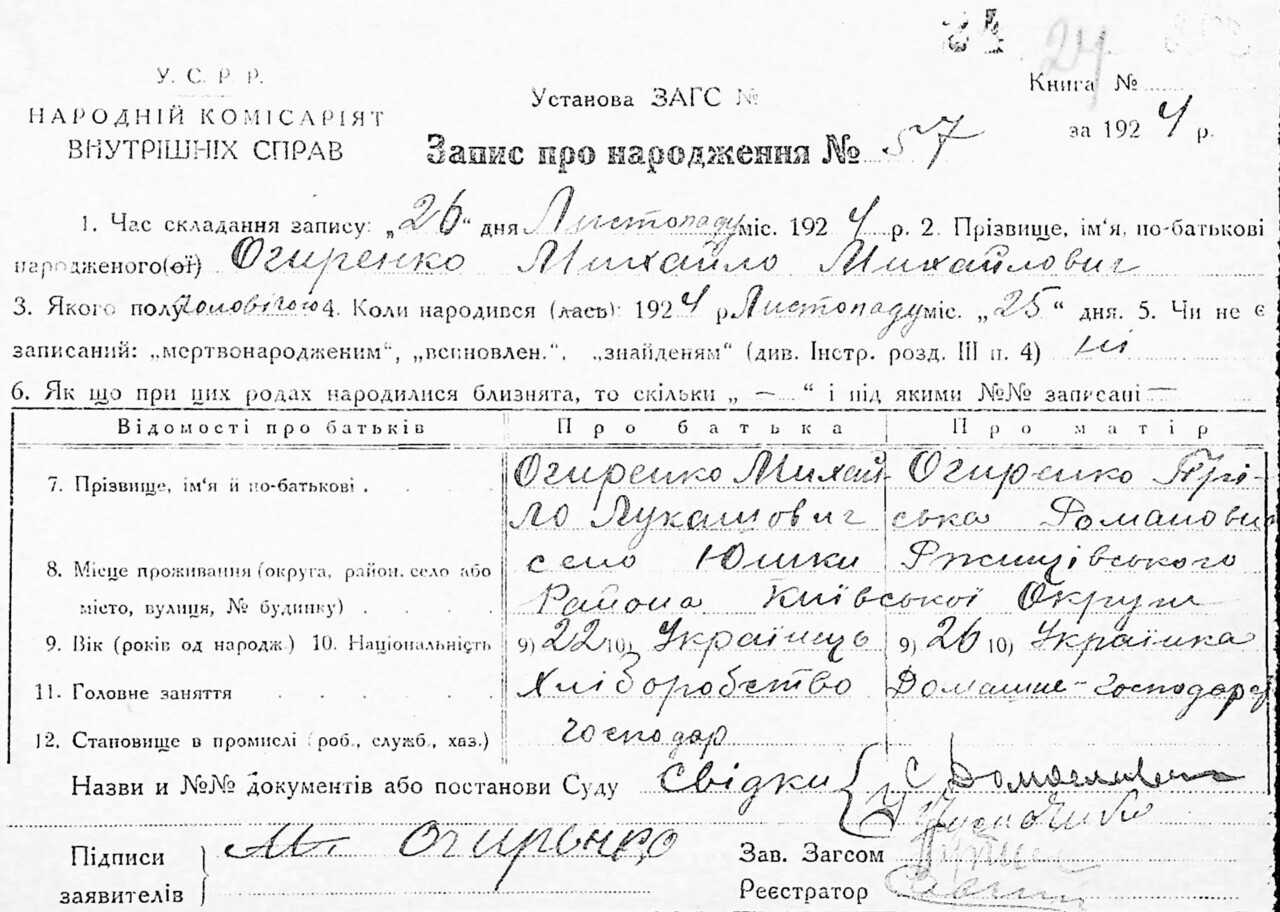 24
У. С. Р. Р.
НАРОДНІЙ КОМІСАРІЯТ
ВНУТРІШНІХ СПРАВ
Установа ЗАГС №
Книга №
за 1924 р.
Запис про народження № 57
1. Час складання запису: „26“ дня Листопаду міс. 1924 р. 2. Прізвище, ім'я, по-батькові
народженого(ої) Огиренко Михайло Михайлович
3. Якого полу чоловічого 4. Коли народився (лась): 1924 р. Листопаду міс. „25“ дня. 5. Чи не є
записаний: „мертвонародженим“, „всиновлен.“, „знайденям“ (див. Інстр. розд. III п. 4) ні
6. Як що при цих родах народилися близнята, то скільки „ — “ і під якими №№ записані —
Відомості про батьків Про батька Про матір
7. Прізвище, ім'я й по-батькові . Огиренко Михай- Огиренко Прі-
ло Лукашович ська Романовна
8. Місце проживання (округа, район, село або село Юшки Ржищівського
місто, вулиця, № будинку) . . . . Района Київської Округи
9. Вік (років од народж.) 10. Національність 9) 22 10) Українець 9) 26 10) Українка
11. Головне заняття . . . . . Хліборобство Домашнє-господар
12. Становище в промислі (роб., служб., хаз.) господар
Назви и №№ документів або постанови Суду Свідки {
Підписи
заявителів } М. Огиренко
Зав. Загсом
Реєстратор